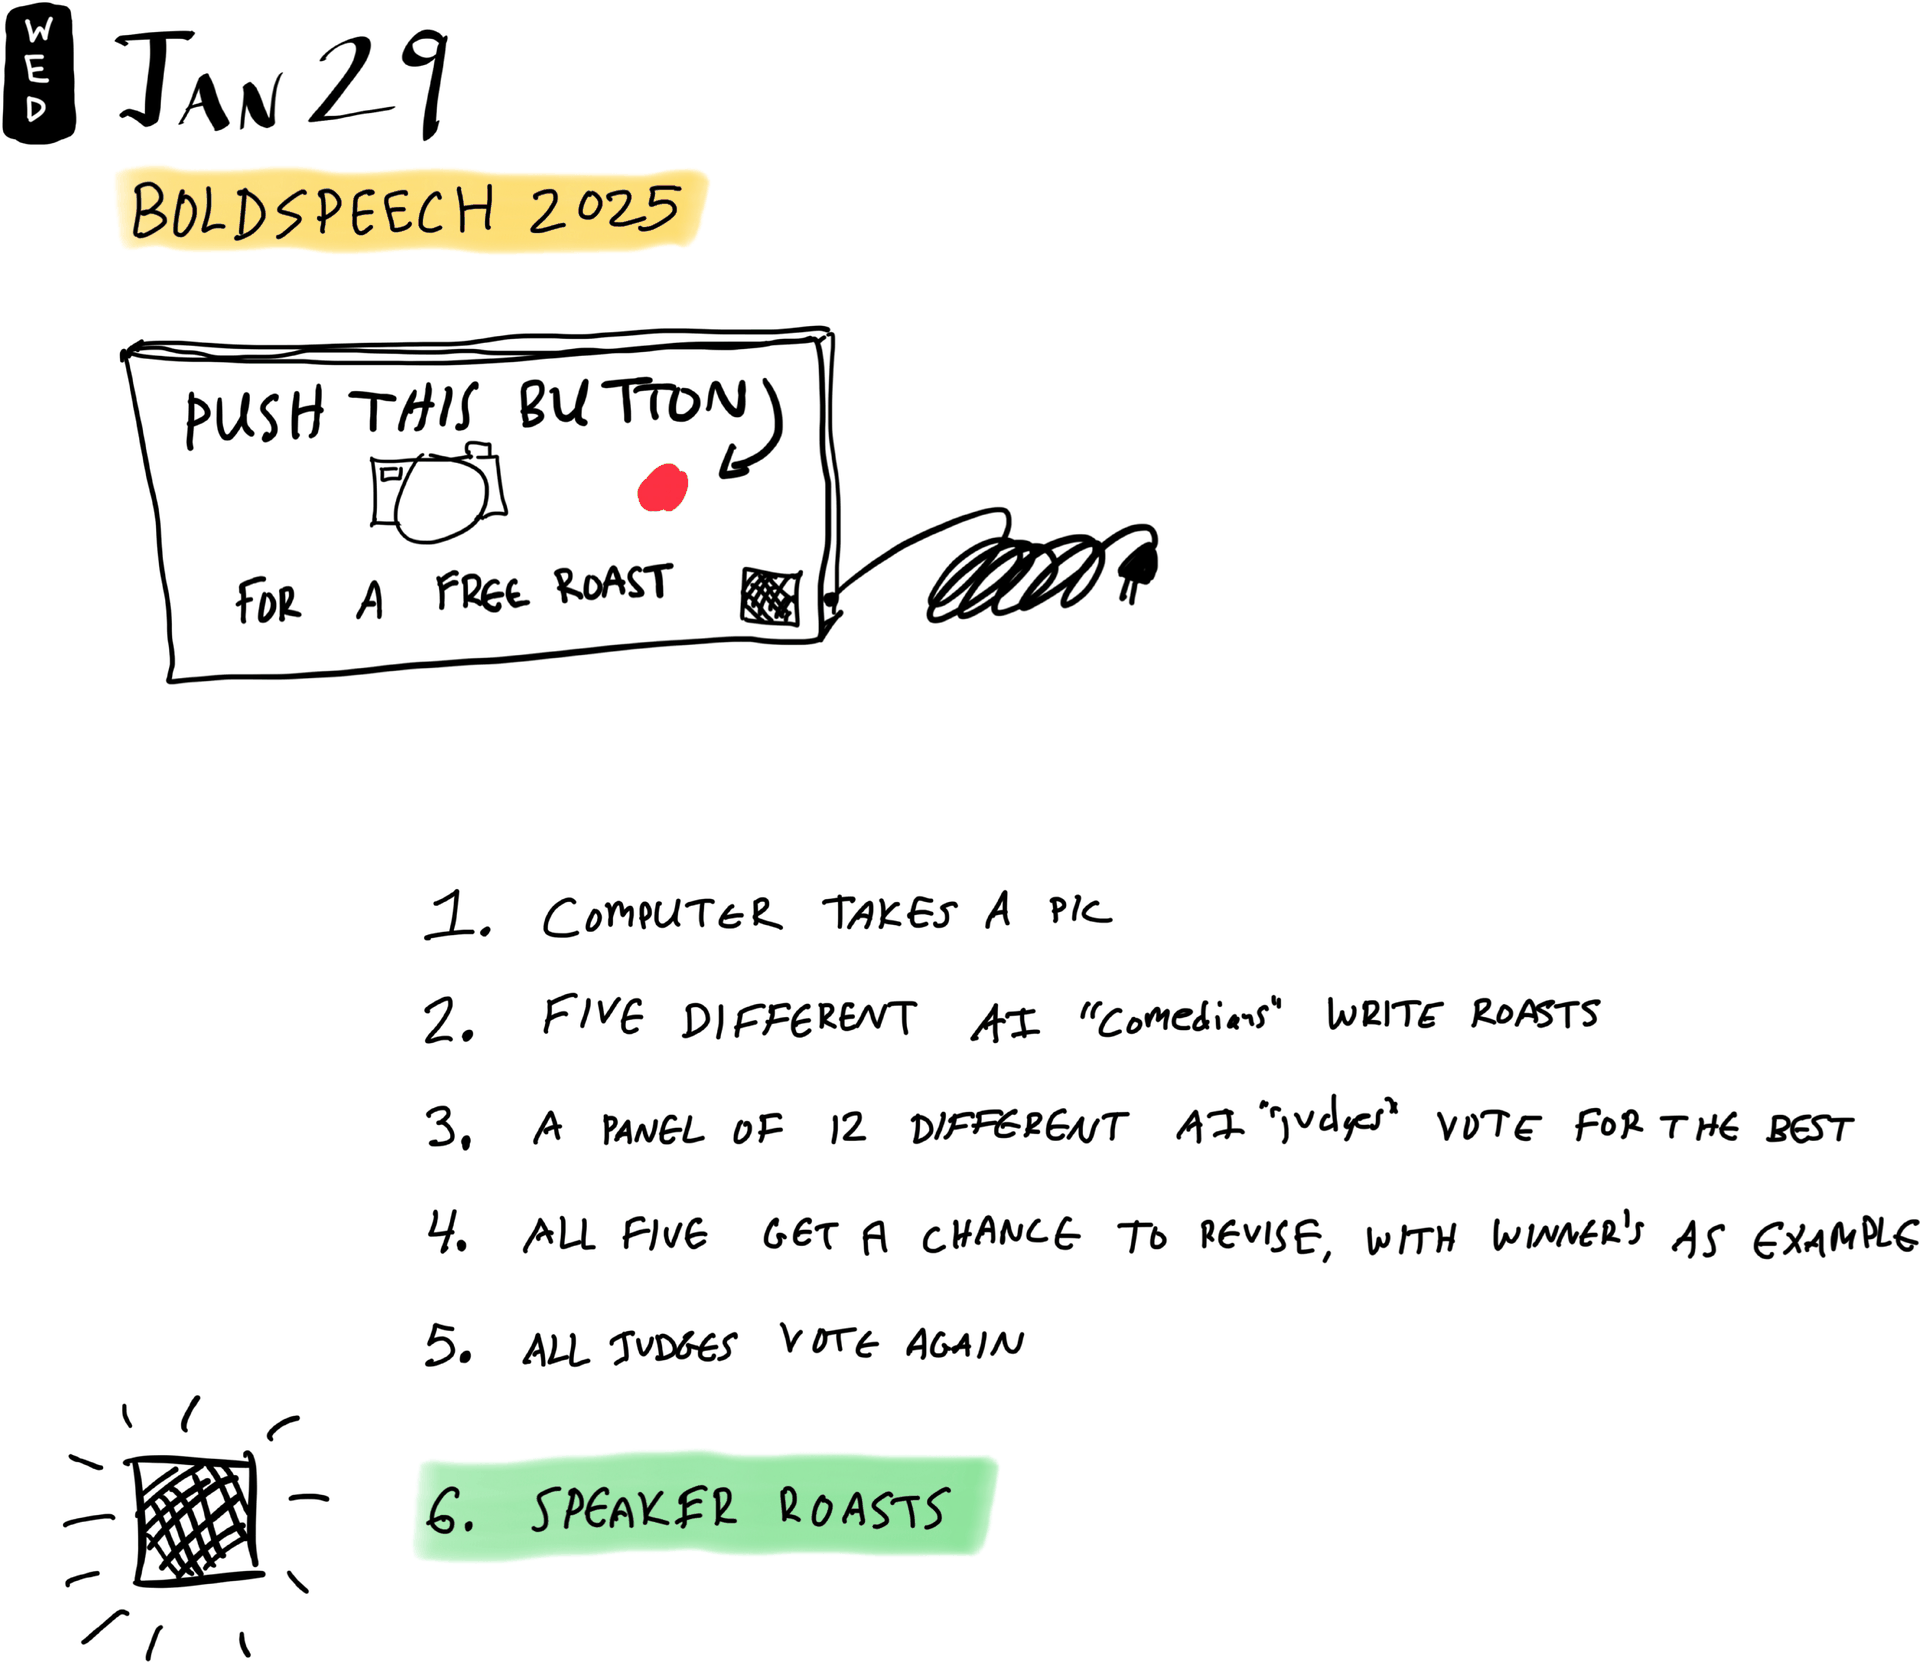 WED
JAN 29
BOLDSPEECH 2025
PUSH THIS BUTTON
FOR A FREE ROAST
1. COMPUTER TAKES A PIC
2. FIVE DIFFERENT AI "Comedians" WRITE ROASTS
3. A PANEL OF 12 DIFFERENT AI "judges" VOTE FOR THE BEST
4. ALL FIVE GET A CHANCE TO REVISE, WITH WINNER'S AS EXAMPLE
5. ALL JUDGES VOTE AGAIN
6. SPEAKER ROASTS